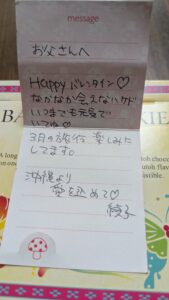 message
お父さんへ
Happy バレンタイン♡
なかなか会えないケド
いつまでも元気で
いてね♡
3月の旅行 楽しみに
してます。
沖縄より
愛を込めて♡
綾子
BA
A long